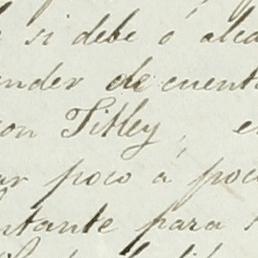 si debe ó alca
ender de cuenta
con Titley, e
ar poco á poco
ntante para